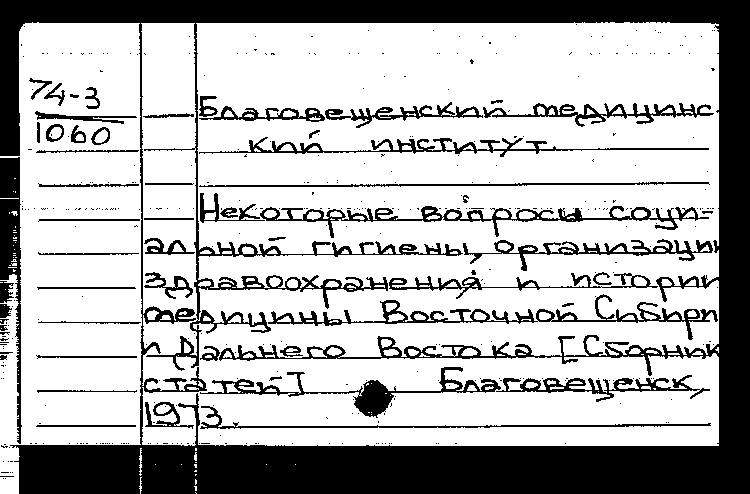 74-3
1060
Благовещенский медицинс
кий институт.
Некоторые вопросы соци-
альной гигиены, организации
здравоохранения и истории
медицины Восточной Сибири
и Дальнего Востока [Сборник
статей] Благовещенск,
1973.